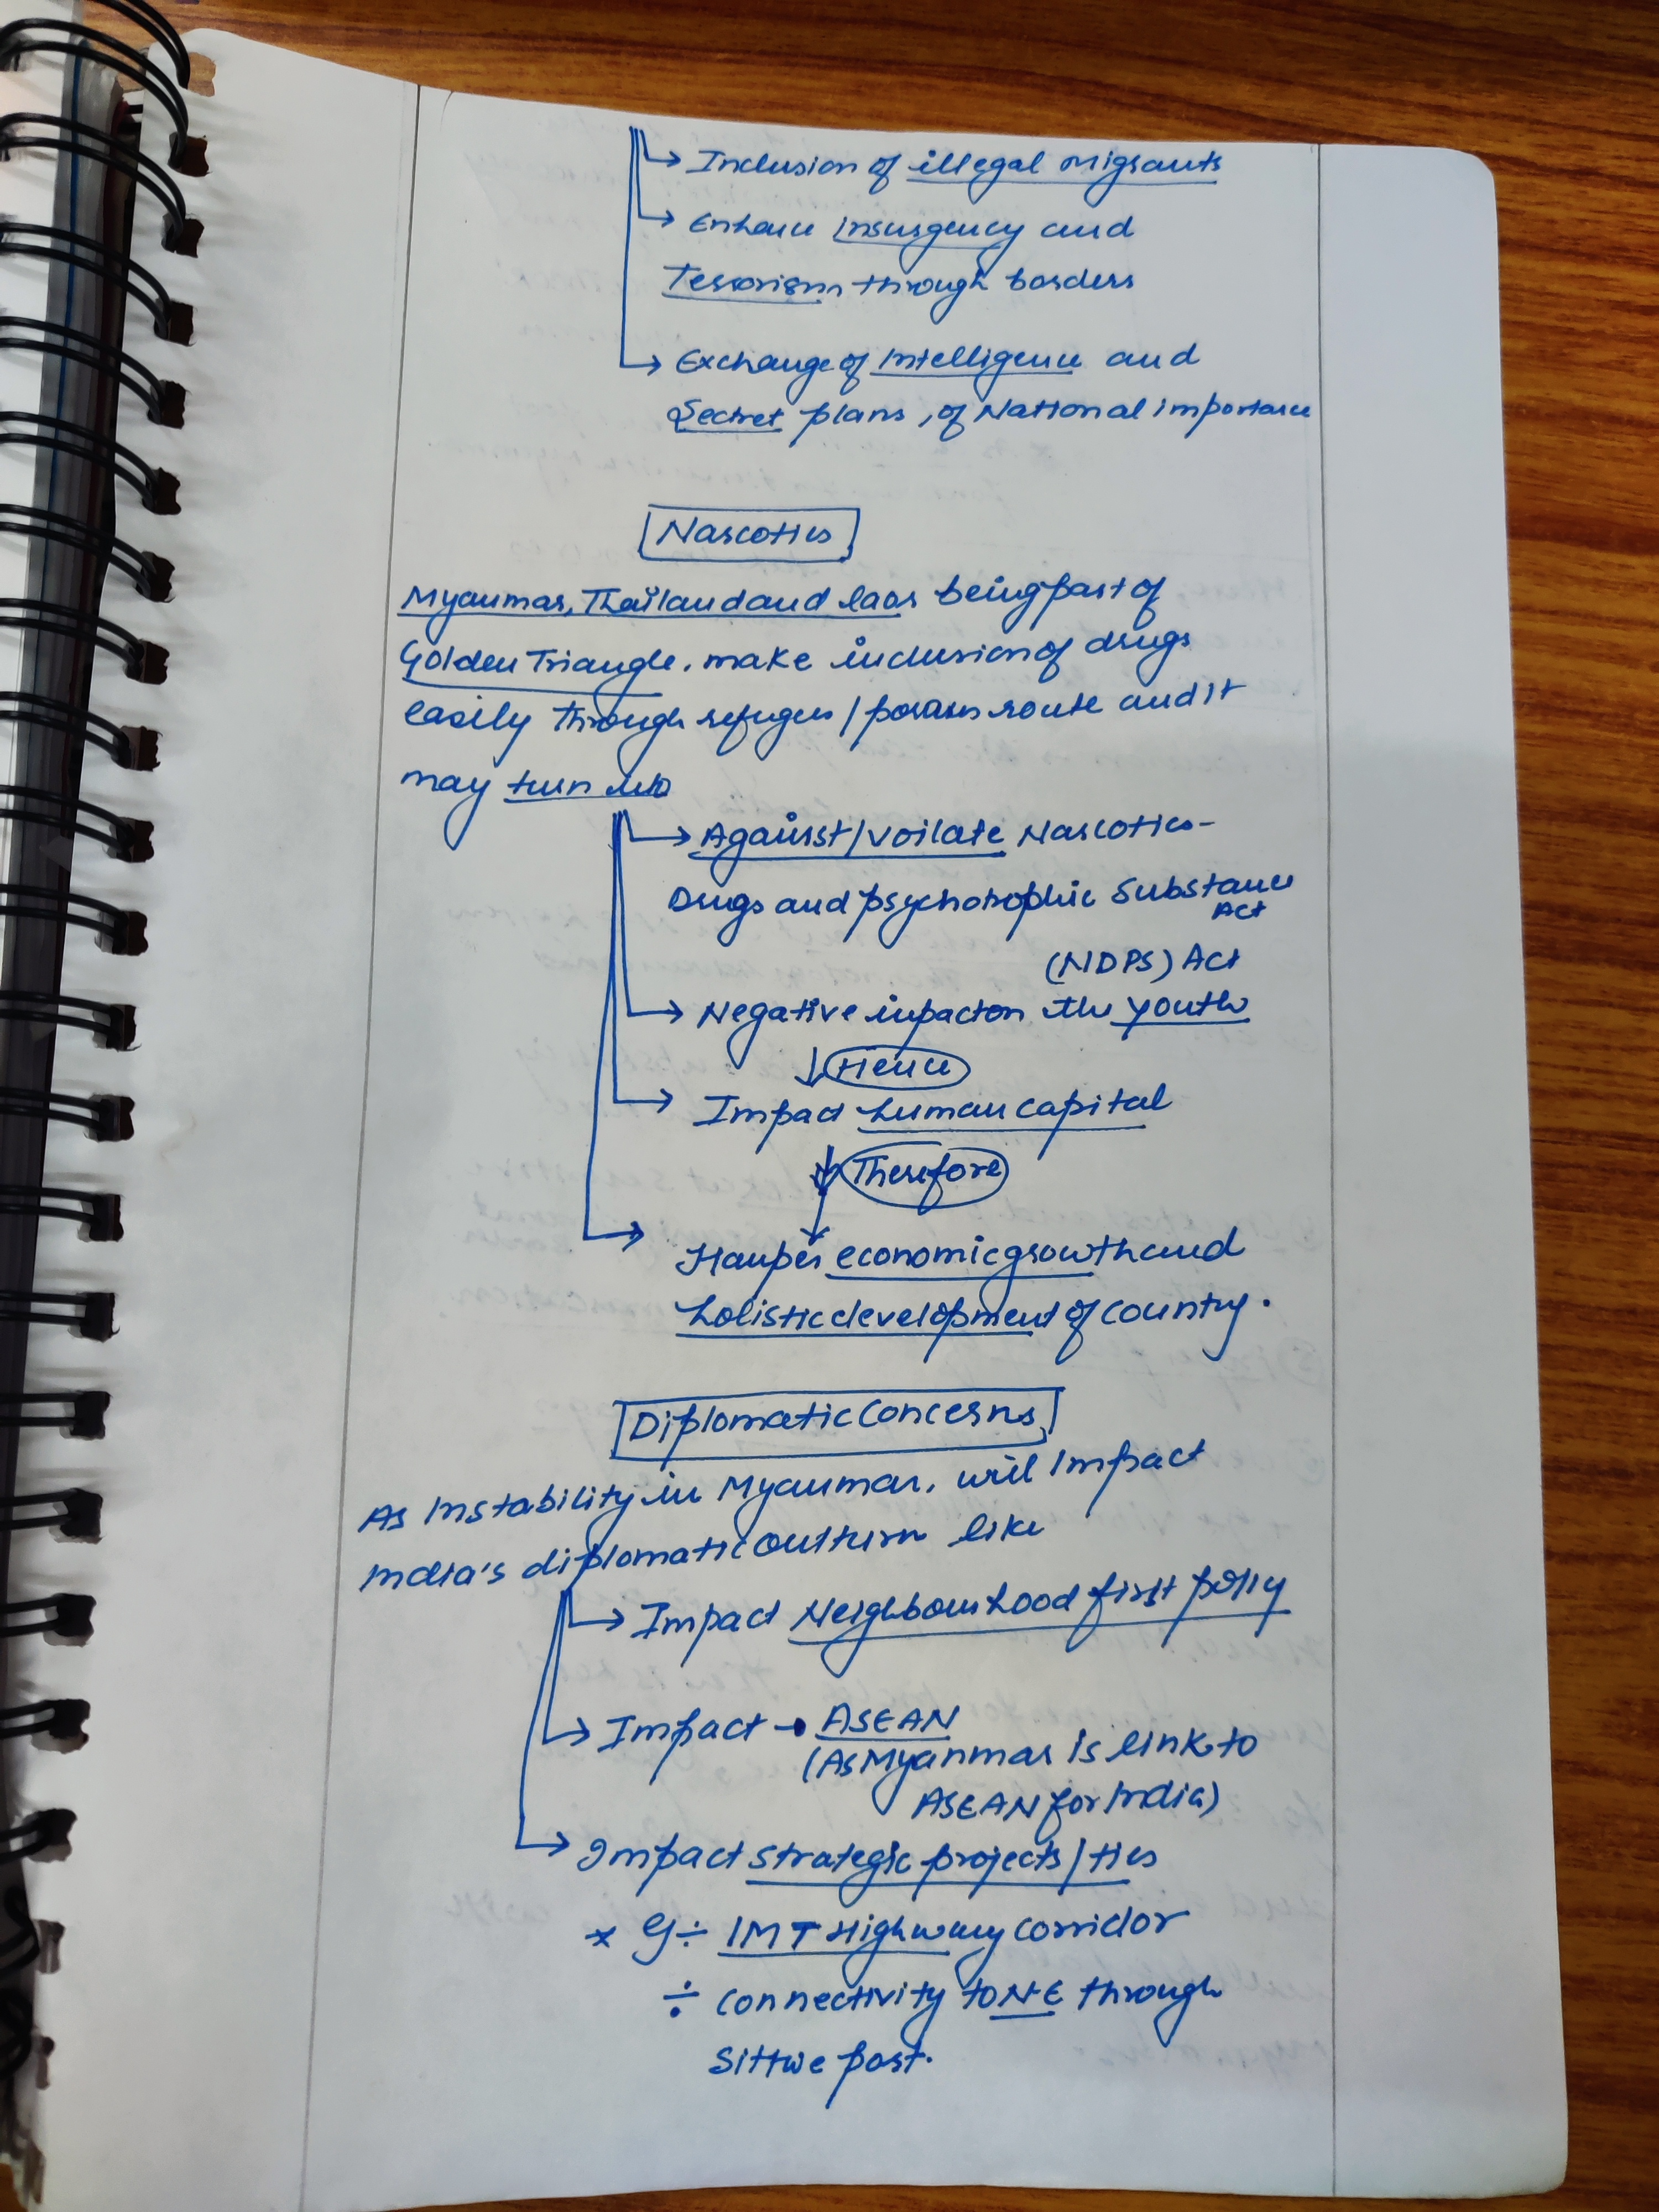 Inclusion of illegal migrants
Enhance insurgency and
Terrorism through borders
Exchange of Intelligence and
Secret plans, of National importance
Narcotics
Myanmar, Thailand and laos being part of
Golden Triangle. make inclusion of drugs
easily through refugees / porous route and it
may turn into
Against / voilate Narcotics-
Drugs and psychotrophic Substance
Act
(NDPS) Act
Negative impact on the youth
Hence
Impact human capital
Therefore
Hamper economic growth and
holistic development of country.
Diplomatic Concerns
As instability in Myanmar, will impact
India's diplomatic outturn like
Impact Neighbourhood first policy
Impact → ASEAN
(As Myanmar is link to
ASEAN for India)
Impact strategic projects / ties
* Eg ÷ IMT Highway corridor
÷ connectivity to NE through
Sittwe port.